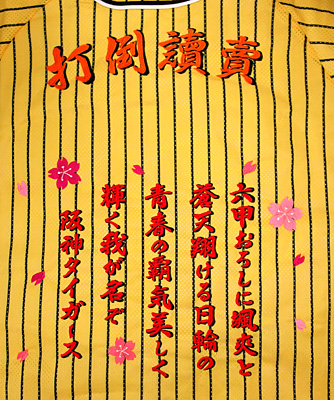 打倒讀賣
六甲おろしに颯爽と
蒼天翔ける日輪の
青春の覇気美しく
輝く我が名ぞ
阪神タイガース